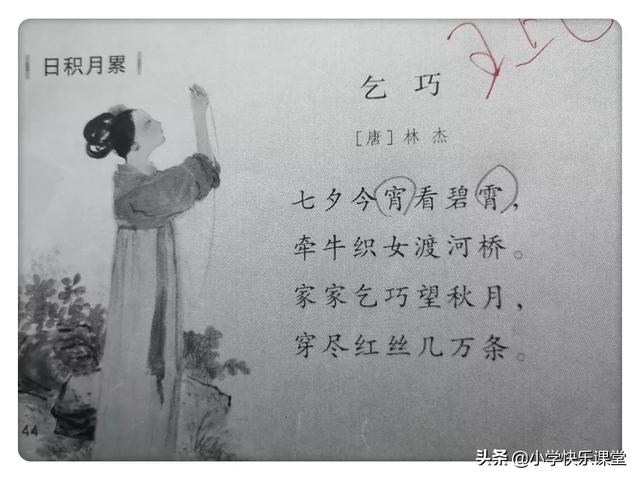 日积月累
乞巧
[唐]林杰
七夕今宵看碧霄，
牵牛织女渡河桥。
家家乞巧望秋月，
穿尽红丝几万条。
44
头条 @小学快乐课堂